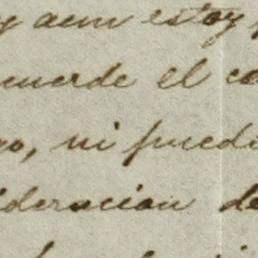 y aun estoy
cuerde el co
o, ni puedi
ideracion de